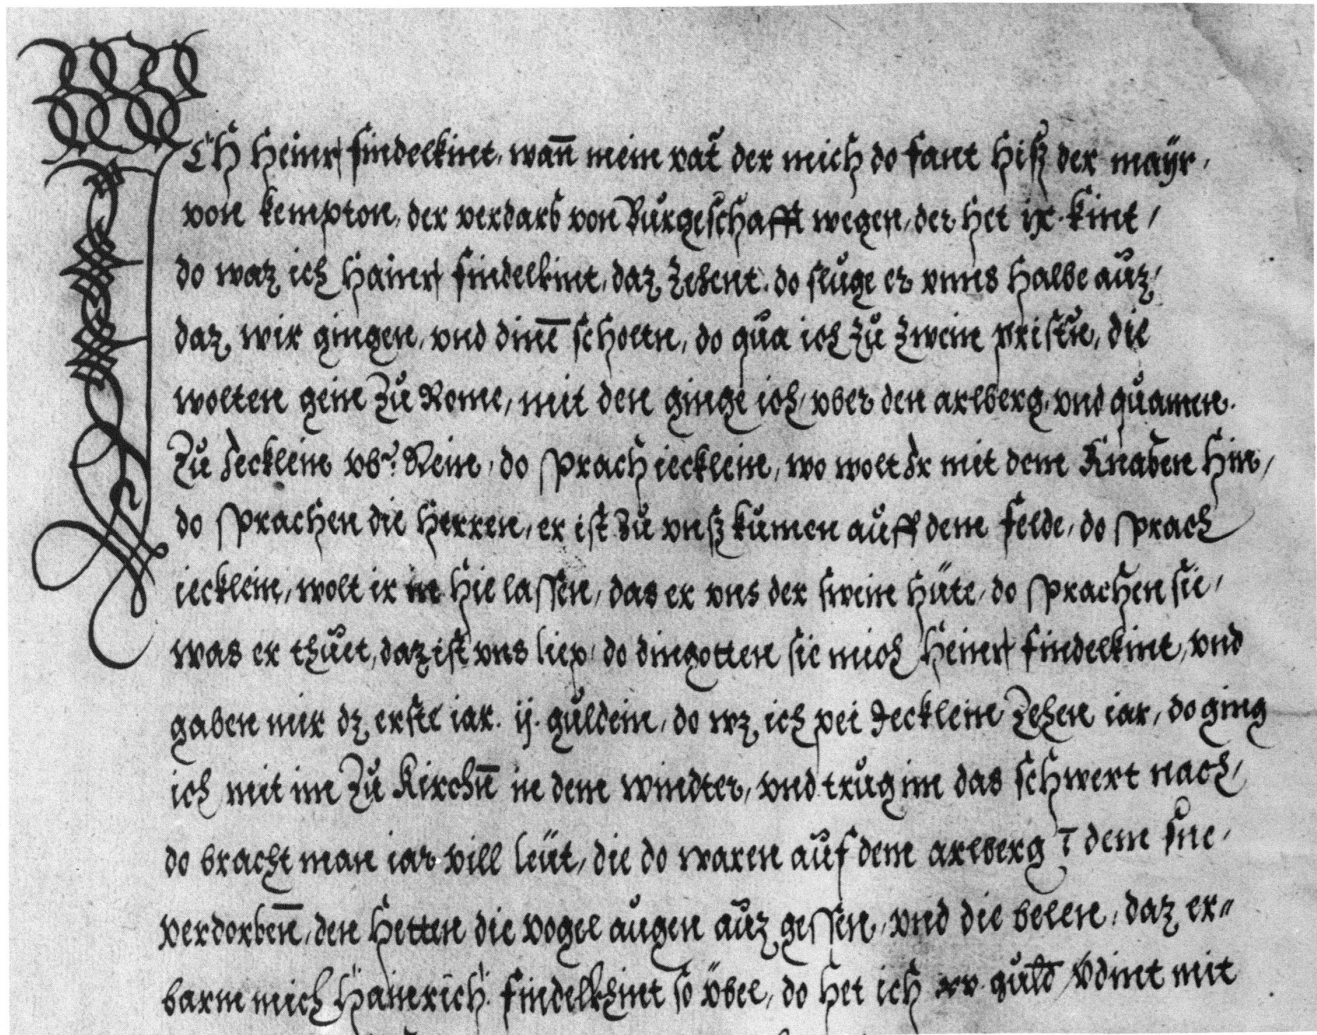 ICH Heinr findelkint, wañ mein vat der mich do fant Hiß der maÿr,
von kempton, der verdarb von Burgeschafft wegen, der Het ix. kint /
do waz ich Hainr findelkint, daz zehent. do sluge er vnns Halbe auz /
daz wir gingen, vnd dinē scholtn, do qua ich zu zwein pristn, die
wolten gein zu Rome, mit den ginge ich, vber den arlberg, vnd quamen.
zu Jecklein vbr Rein, do sprach iecklein, wo wolt Ir mit dem Knaben Hin,
do sprachen die Herren, er ist zu vnß kumen auff dem felde, do sprach
iecklein, wolt ir in Hie lassen, das er vns der swein Hüte, do sprachen sie,
was er thuet, daz ist vns liep, do dingotten sie mich Heinr findelkint, vnd
gaben mir dz erste iar. ij. guldein, do wz ich pei Jecklein zehen iar, do ging
ich mit im zu Kirchn̄ in dem windter, vnd trug im das schwert nach /
do bracht man iar vill leüt, die do waren auf dem arlberg ī dem sne,
verdorbenn̄, den Hetten die vogel augen auz gessen, vnd die kelen, daz er=
barm mich Hainrich findelkhint so vbel, do Het ich xv. guld vdint mit